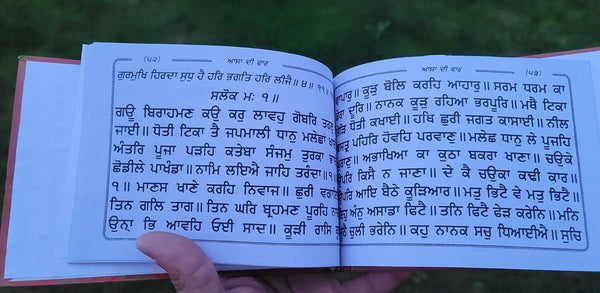 (੫੨) ਆਸਾ ਦੀ ਵਾਰ
ਗੁਰਮੁਖਿ ਹਿਰਦਾ ਸੁਧੁ ਹੈ ਹਰਿ ਭਗਤਿ ਹਰਿ ਲੀਜੈ॥ ੪॥ ੧੧॥
ਸਲੋਕ ਮਃ ੧॥
ਗਊ ਬਿਰਾਹਮਣ ਕਉ ਕਰੁ ਲਾਵਹੁ ਗੋਬਰਿ
ਜਾਈ॥ ਧੋਤੀ ਟਿਕਾ ਤੈ ਜਪਮਾਲੀ ਧਾਨੁ ਮਲੇਛਾਂ
ਅੰਤਰਿ ਪੂਜਾ ਪੜਹਿ ਕਤੇਬਾ ਸੰਜਮੁ ਤੁਰਕਾ
ਛੋਡੀਲੇ ਪਾਖੰਡਾ॥ ਨਾਮਿ ਲਇਐ ਜਾਹਿ ਤਰੰਦਾ॥
੧॥ ਮਾਣਸ ਖਾਣੇ ਕਰਹਿ ਨਿਵਾਜ॥ ਛੁਰੀ
ਤਿਨ ਗਲਿ ਤਾਗ॥ ਤਿਨ ਘਰਿ ਬ੍ਰਹਮਣ ਪੂਰਹਿ
ਉਨਾੑ ਭਿ ਆਵਹਿ ਓਈ ਸਾਦ॥ ਕੂੜੀ ਰਾਸਿ
ਆਸਾ ਦੀ ਵਾਰ (੫੩)
ਕੂੜੁ ਬੋਲਿ ਕਰਹਿ ਆਹਾਰੁ॥ ਸਰਮ ਧਰਮ ਕਾ
ਦੂਰਿ॥ ਨਾਨਕ ਕੂੜੁ ਰਹਿਆ ਭਰਪੂਰਿ॥ ਮਥੈ ਟਿਕਾ
ਧੋਤੀ ਕਖਾਈ॥ ਹਥਿ ਛੁਰੀ ਜਗਤ ਕਾਸਾਈ॥ ਨੀਲ
ਪਹਿਰਿ ਹੋਵਹਿ ਪਰਵਾਣੁ॥ ਮਲੇਛ ਧਾਨੁ ਲੇ ਪੂਜਹਿ
ਅਭਾਖਿਆ ਕਾ ਕੁਠਾ ਬਕਰਾ ਖਾਣਾ॥ ਚਉਕੇ
ਉਪਰਿ ਕਿਸੈ ਨ ਜਾਣਾ॥ ਦੇ ਕੈ ਚਉਕਾ ਕਢੀ ਕਾਰ॥
ਉਪਰਿ ਆਇ ਬੈਠੇ ਕੂੜਿਆਰ॥ ਮਤੁ ਭਿਟੈ ਵੇ ਮਤੁ ਭਿਟੈ॥
ਅੰਨੁ ਅਸਾਡਾ ਫਿਟੈ॥ ਤਨਿ ਫਿਟੈ ਫੇੜ ਕਰੇਨਿ॥ ਮਨਿ
ਚੁਲੀ ਭਰੇਨਿ॥ ਕਹੁ ਨਾਨਕ ਸਚੁ ਧਿਆਈਐ॥ ਸੁਚਿ